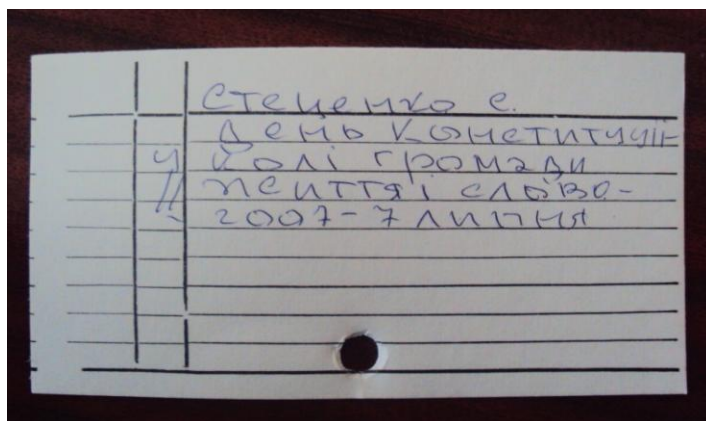 Стеценко Є.
День Конституції
у колі громади
// Життя і слово.-
2007-7 липня